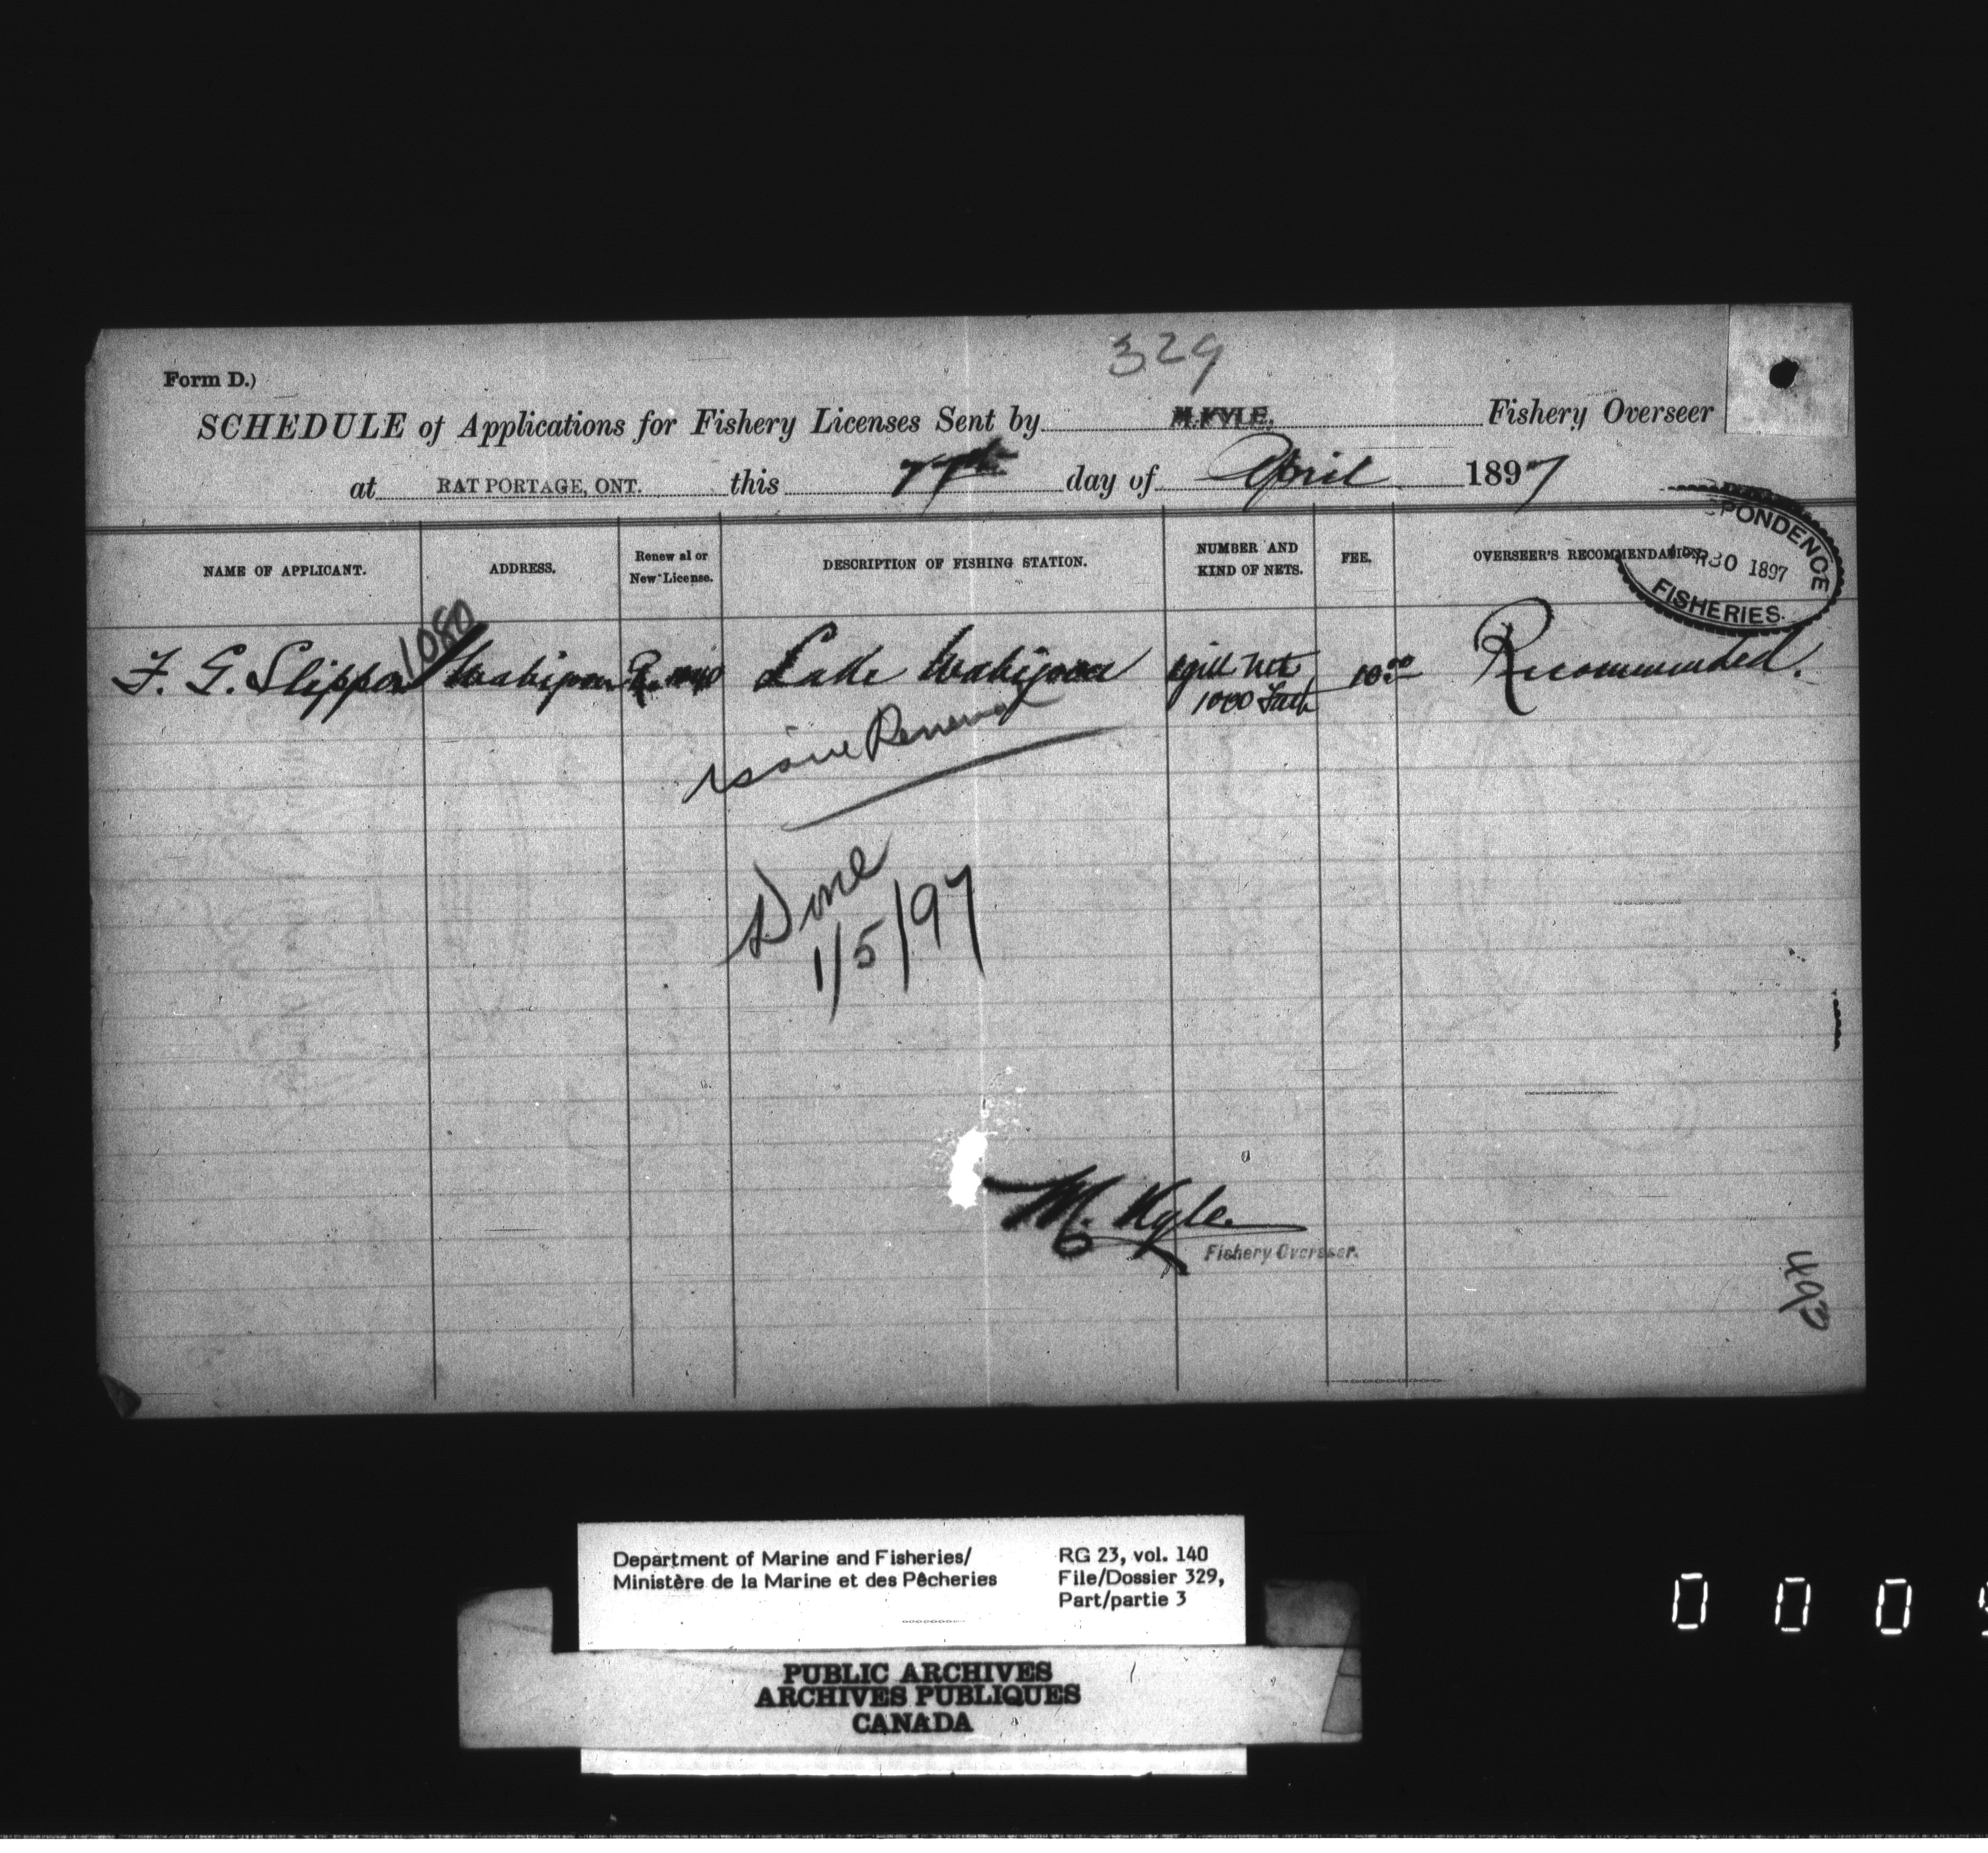 329
Form D.)
SCHEDULE of Applications for Fishery Licenses Sent by M. KYLE. Fishery Overseer
at RAT PORTAGE, ONT. this 7th day of April 1897
NAME OF APPLICANT. ADDRESS. Renewal or New License. DESCRIPTION OF FISHING STATION. NUMBER AND KIND OF NETS. FEE. OVERSEER'S RECOMMENDATION.
PONDENCE
APR 30 1897
FISHERIES.
1080
F. G. Slippon Wabigoon Lake Wabigoon gill net 10.00 Recommended.
1000 Fath
issue Renewal
Done
1/5/97
M. Kyle
Fishery Overseer.
493
Department of Marine and Fisheries/ RG 23, vol. 140
Ministère de la Marine et des Pêcheries File/Dossier 329,
Part/partie 3
PUBLIC ARCHIVES
ARCHIVES PUBLIQUES
CANADA
0 0 0